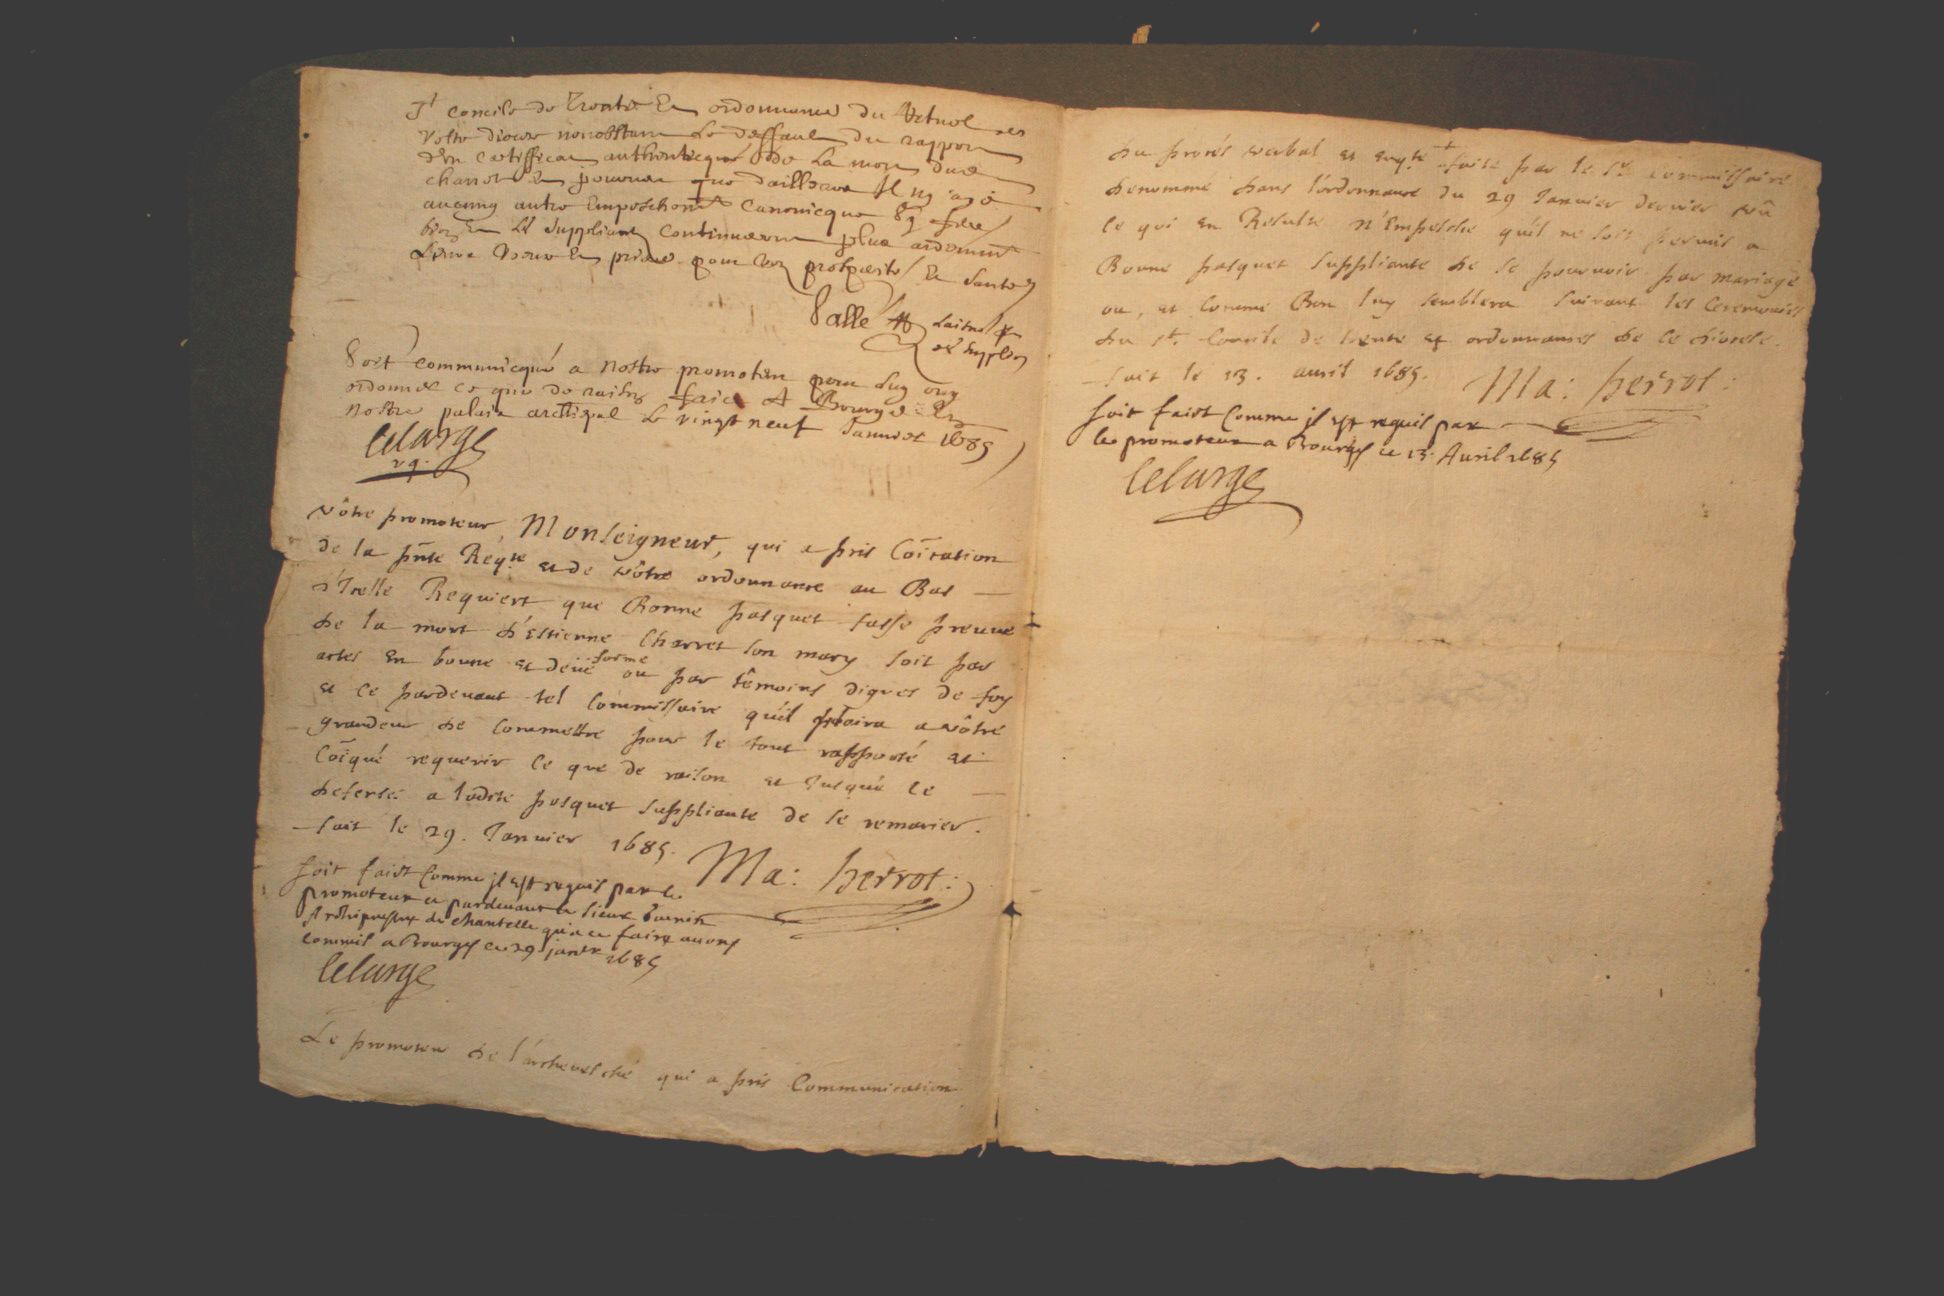 st concile de Trente Et ordonnances du
vostre diocese nonobstant Le deffault du rapport
d'Un certifficat authenticque de La mort dud
charret Et pourveu que dailleurs Il ny aye
aucung autre Empeschement Canonicque Et
Et La Suppliante Continuera plus ardemment
prieres pour voz prosperité Et Santé
Salle
de supplier
Soit communicqué a nostre promoteur pour luy ouy
ordonner ce que de raison faict A Bourges En
nostre palais archipal Le vingt neuf Janvier 1685
Lelarge
vg.
vôtre promoteur, Monseigneur, qui a pris Coïcation
de la pñte Reqte et de vôtre ordonnance au Bas
d'Icelle Requiert que Bonne pasquet fasse preuve
de la mort d'Estienne Charret son mary soit par
actes En bonne et deüe forme ou par têmoins dignes de foy
et ce pardevant tel Commissaire qu'il plaira a vôtre
grandeur de Commettre pour le tout rapporté et
Coïqué requerir ce que de raison et Jusqué ce
defense a ladite pasquet suppliante de se remarier.
fait le 29. Janvier 1685. Ma: perrot:
soit faict Comme jl est requis par le
promoteur et pardevant le sieur
Archiprestre de chantelle qu'a ce faire avons
commis a Bourges ce 29 janer 1685
Lelarge
Le promoteur de l'archevesché qui a pris Communication
du procés verbal et enqte faite par le Sr. Commissaire
denommé dans l'ordonnance du 29 Janvier dernier vû
ce qui en Resulte n'Empesche qu'il ne soit permis a
Bonne pasquet suppliante de se pourvoir par mariage
ou, et Comme Bon luy semblera suivant les Ceremonies
du st. Concile de trente et ordonnances de ce diocese.
fait le 13. avril 1685. Ma: perrot:
soit faict Comme jl est requis par
le promoteur a Bourges ce 13 Avril 1685
Lelarge